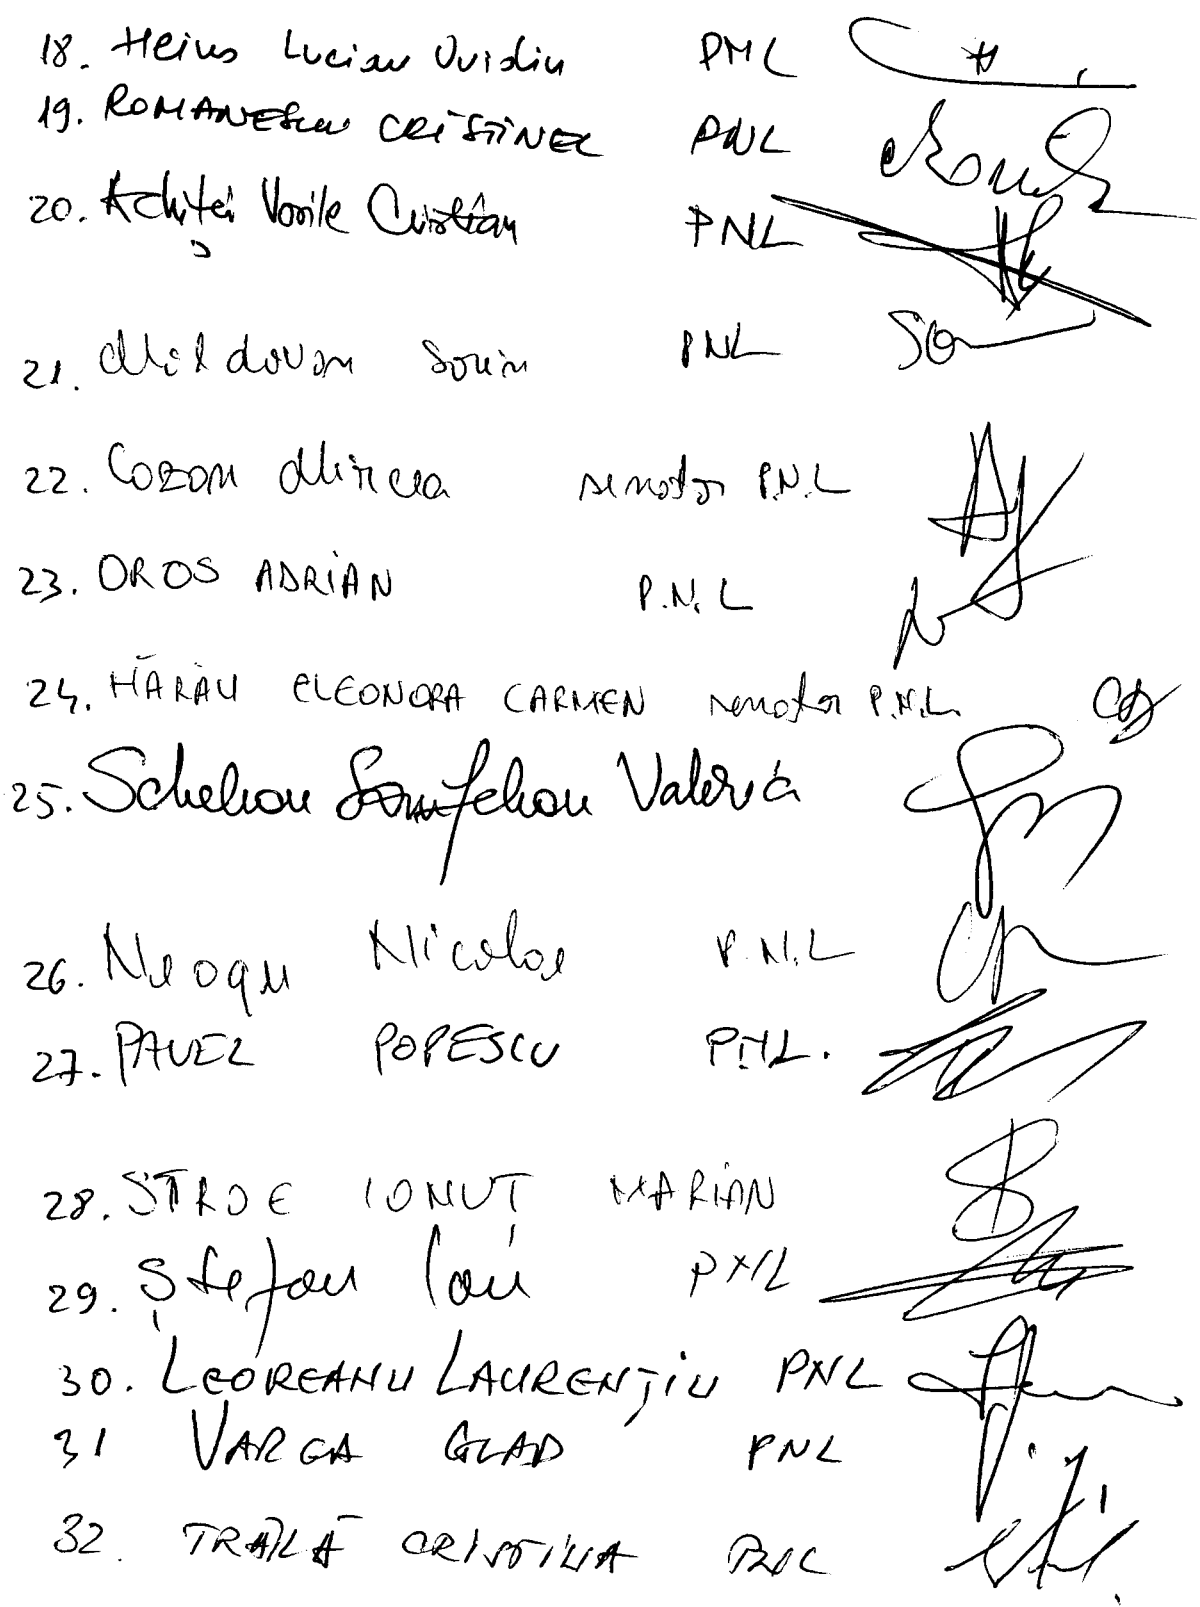 18. Heius Lucian Ovidiu PNL
19. ROMANESCU CRISTINEL PNL
20. Achiței Vasile Cristian PNL
21. Moldovan Sorin PNL
22. Cozan Mircea senator P.N.L
23. OROS ADRIAN P.N.L
24. HĂRĂU ELEONORA CARMEN senator P.N.L.
25. Schelean Valeria
26. Neagu Nicolae P.N.L
27. PAVEL POPESCU PNL.
28. STROE IONUȚ MARIAN
29. Ștefan Ion PNL
30. LEOREANU LAURENȚIU PNL
31 VARGA GLAD PNL
32. TRĂILĂ CRISTINA PNL